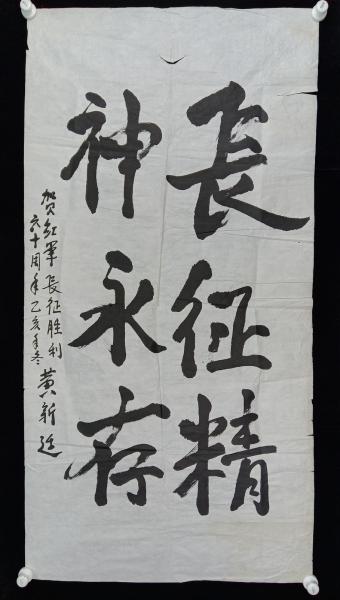 長征精
神永存
贺红军長征胜利
六十周年乙亥年冬
黄新廷